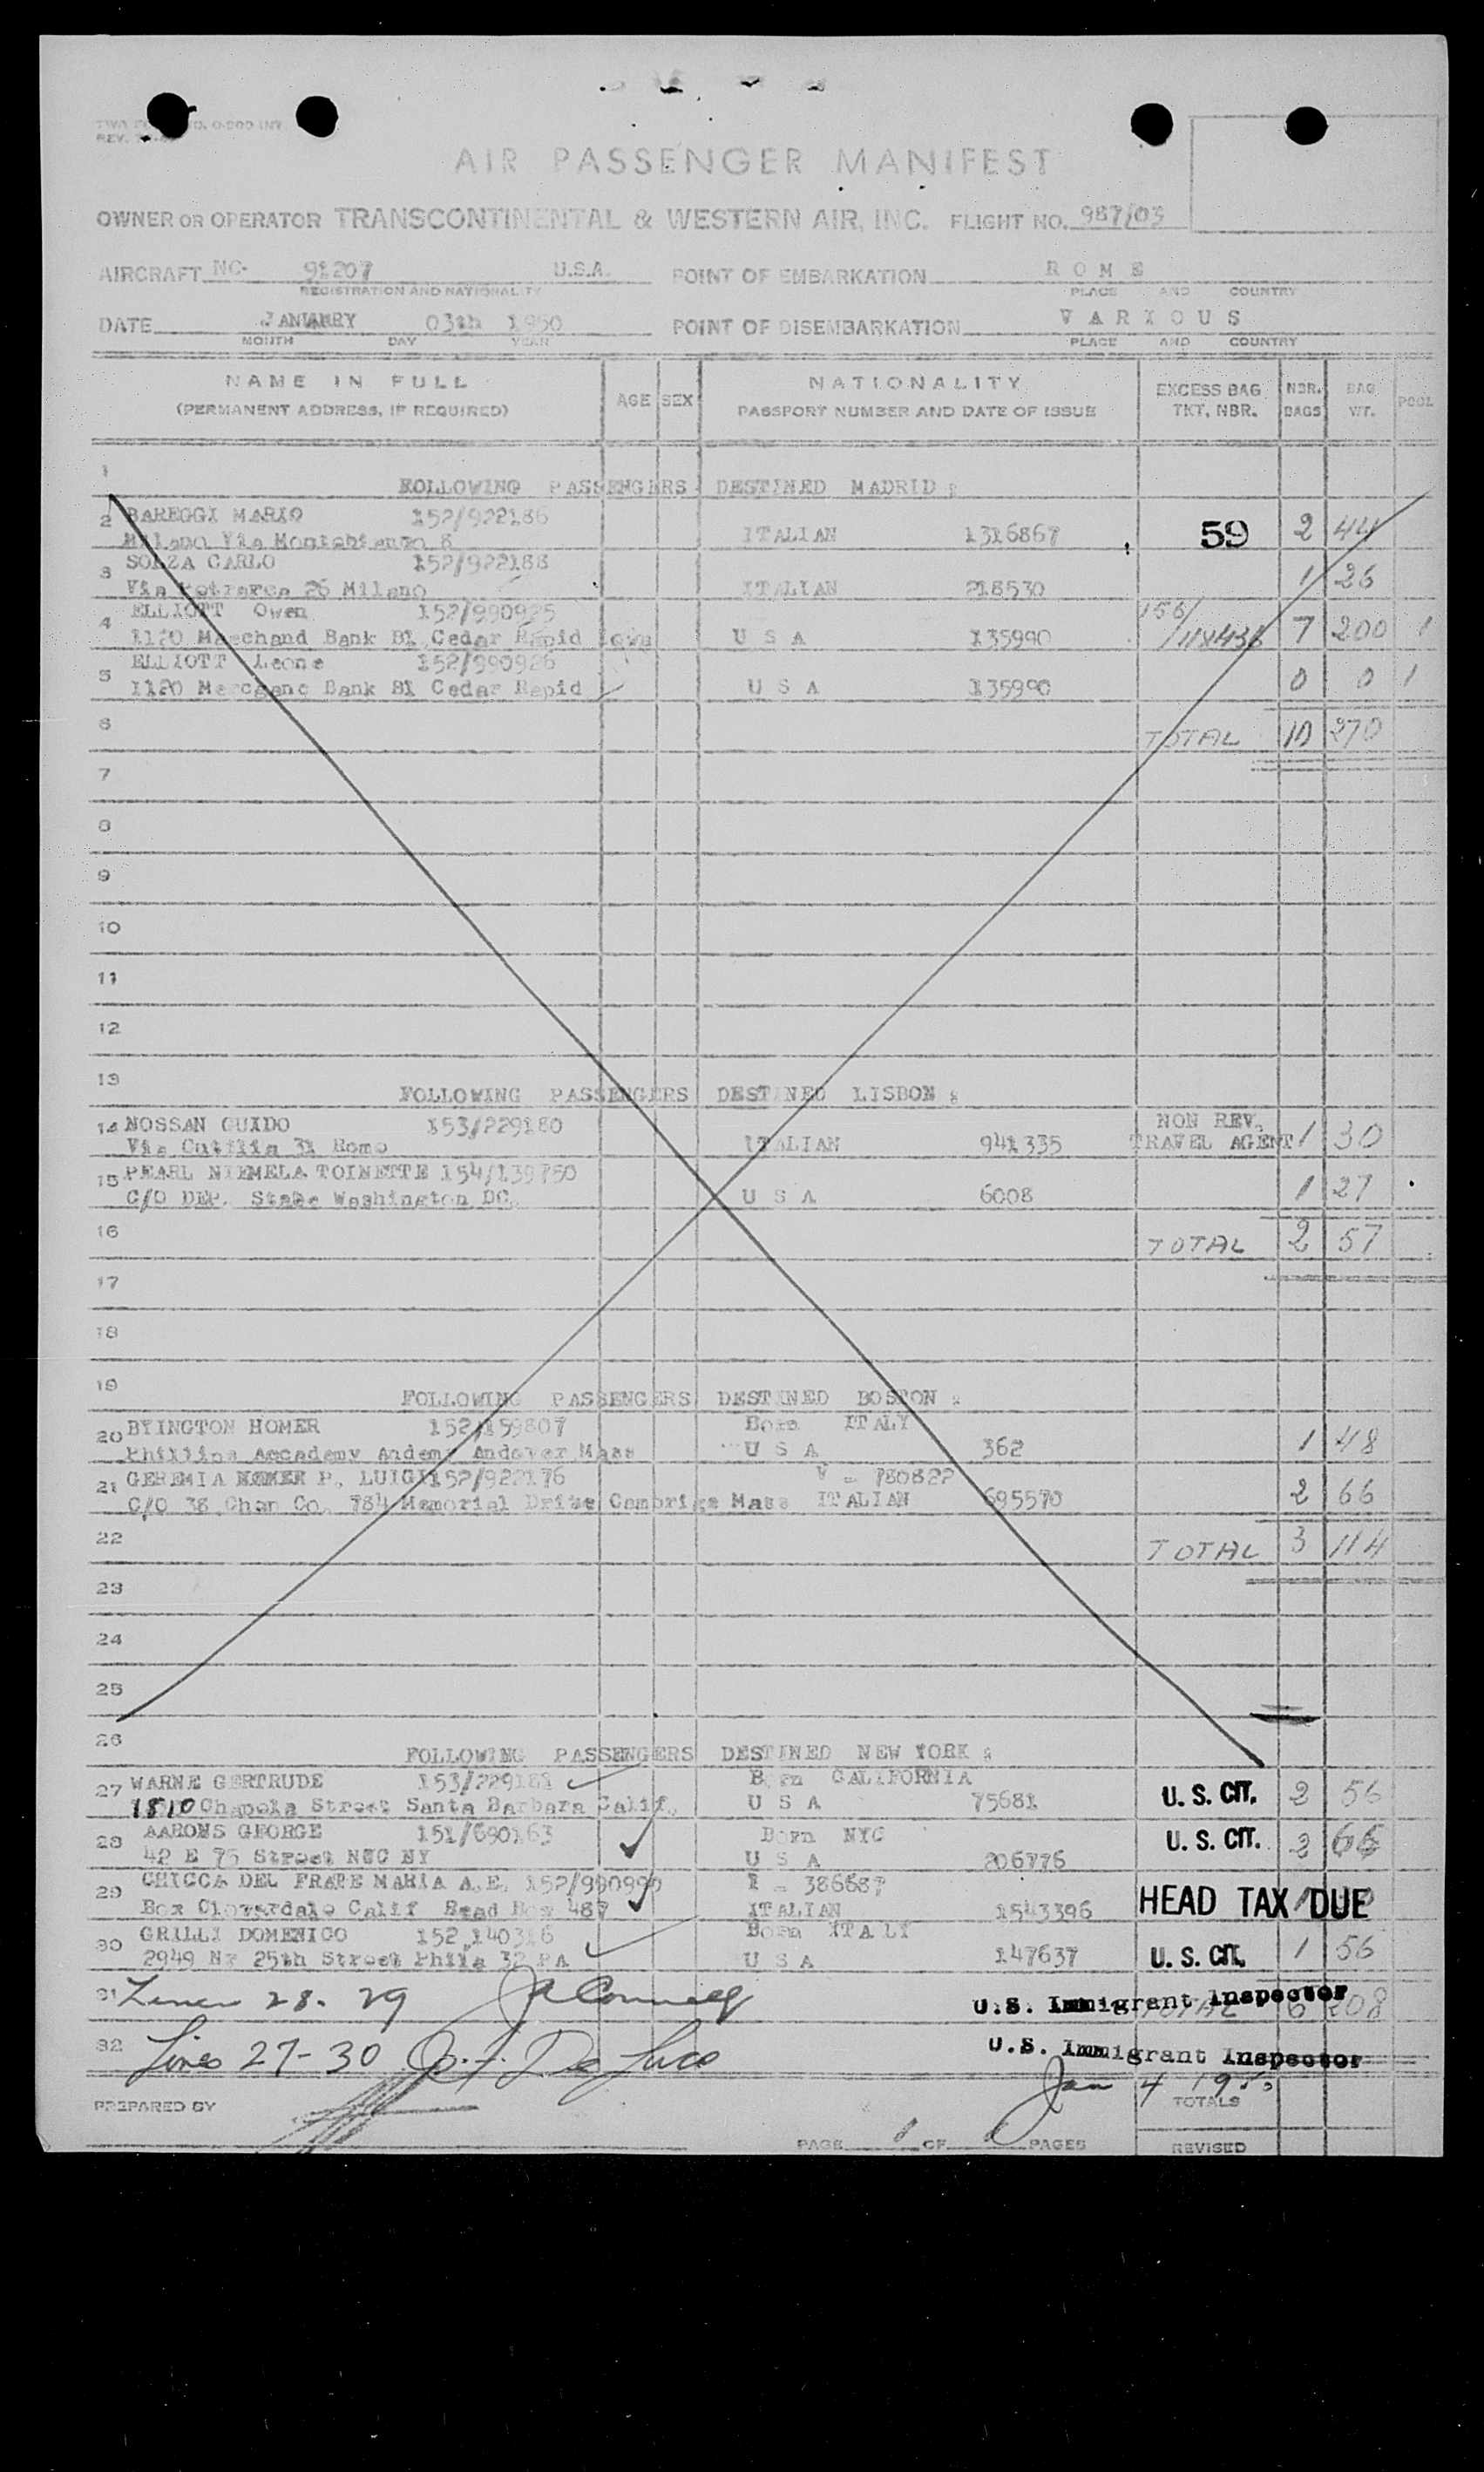 REV.
AIR PASSENGER MANIFEST
OWNER OR OPERATOR TRANSCONTINENTAL & WESTERN AIR, INC. FLIGHT NO. 987/03
AIRCRAFT NC- 91207 U.S.A. POINT OF EMBARKATION ROME
REGISTRATION AND NATIONALITY PLACE AND COUNTRY
DATE 03th 1950 POINT OF DISEMBARKATION VARIOUS
MONTH DAY YEAR PLACE AND COUNTRY
NAME IN FULL AGE SEX NATIONALITY EXCESS BAG NBR. BAG POOL
(PERMANENT ADDRESS, IF REQUIRED) PASSPORT NUMBER AND DATE OF ISSUE TKT. NBR. BAGS WT.
1 FOLLOWING PASSENGERS DESTINED MADRID :
2 BAREGGI MARIO 152/922186
Milano Via ITALIAN 1316867 59 2 44
3 CARLO 152/922188
Via 26 Milano ITALIAN 218530 1 26
4 ELLIOTT Owen 152/990925 156/
1120 Bank Bl Cedar Rapid USA 135990 118436 7 200 1
5 ELLIOTT Leone 152/990926
1120 Bank Bl Cedar Rapid USA 135990 0 0 1
6 TOTAL 10 270
7
8
9
10
11
12
13 FOLLOWING PASSENGERS DESTINED LISBON :
14 NOSSAN GUIDO 153/229180 NON REV.
Via Cutilia 31 Rome ITALIAN 941335 TRAVEL AGENT 1 30
15 PEARL NIEMELA TOINETTE 154/139750
C/O DEP. State Washington DC. USA 6008 1 27
16 TOTAL 2 57
17
18
19 FOLLOWING PASSENGERS DESTINED BOSTON :
20 BYINGTON HOMER 152,159807 Born ITALY
Phillips Accademy Andover Mass USA 362 1 48
21 GEREMIA P., LUIGI 152/922176 V - 780822
C/O 38 Chan Co. 784 Memorial Drive Cambrige Mass ITALIAN 695570 2 66
22 TOTAL 3 114
23
24
25
26 FOLLOWING PASSENGERS DESTINED NEW YORK :
27 WARNE GERTRUDE 153/229181 Born CALIFORNIA
1810 Chapola Street Santa Barbara Calif. USA 75681 U.S. CIT. 2 56
28 AARONS GEORGE 151/690163 Born NYC
42 E 75 Street NYC NY USA 206776 U.S. CIT. 2 66
29 CHICCA DEL FRATE MARIA A.E. 152/990990 I - 386687
Box Cloverdale Calif Box 487 ITALIAN 1543396 HEAD TAX DUE
30 GRILLI DOMENICO 152,140316 Born ITALY
2949 N. 25th Street Phila 32 PA USA 147637 U.S. CIT. 1 56
31 Lines 28. 29 U.S. Immigrant Inspector TOTAL 6 208
32 Lines 27-30 De Luco U.S. Immigrant Inspector
Jan 4 1950
PREPARED BY TOTALS
PAGE 1 OF PAGES REVISED